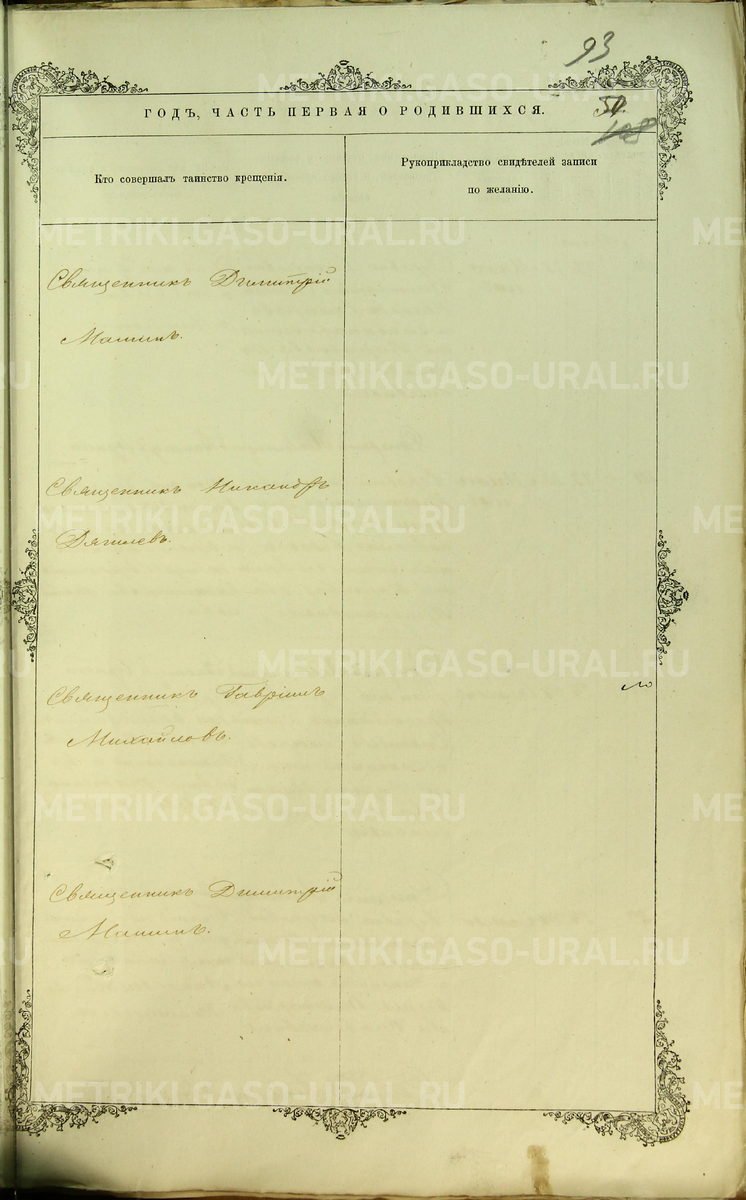 93
ГОДЪ, ЧАСТЬ ПЕРВАЯ О РОДИВШИХСЯ.
Кто совершалъ таинство крещенія.
Рукоприкладство свидѣтелей записи
по желанію.
Священникъ Димитрій
Машинъ.
Священникъ Никаноръ
Дягилевъ.
Священникъ Гавріилъ
Михайловъ.
Священникъ Димитрій
Машинъ.
METRIKI.GASO-URAL.RU